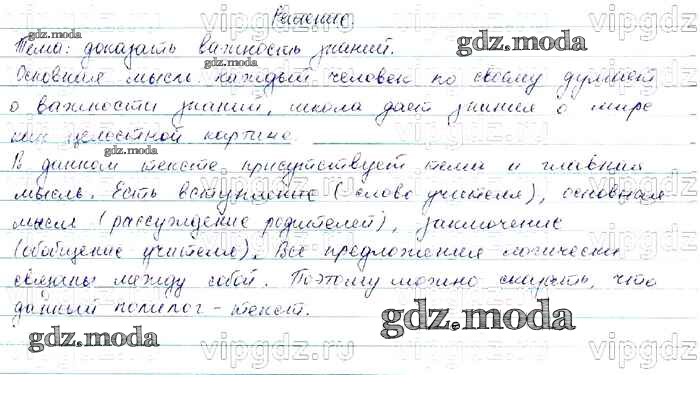 Решение
Тема: доказать важность знаний.
Основная мысль: каждый человек по своему думает
о важности знаний, школа даёт знания о мире
как целостной картине.
В данном тексте присутствует тема и главная
мысль. Есть вступление (слово учителя), основная
мысль (рассуждение родителей), заключение
(обобщение учителя). Все предложения логически
связаны между собой. Поэтому можно сказать, что
данный полилог - текст.
gdz.moda
gdz.moda
gdz.moda
gdz.moda
gdz.moda
gdz.moda
gdz.moda
vipgdz.ru